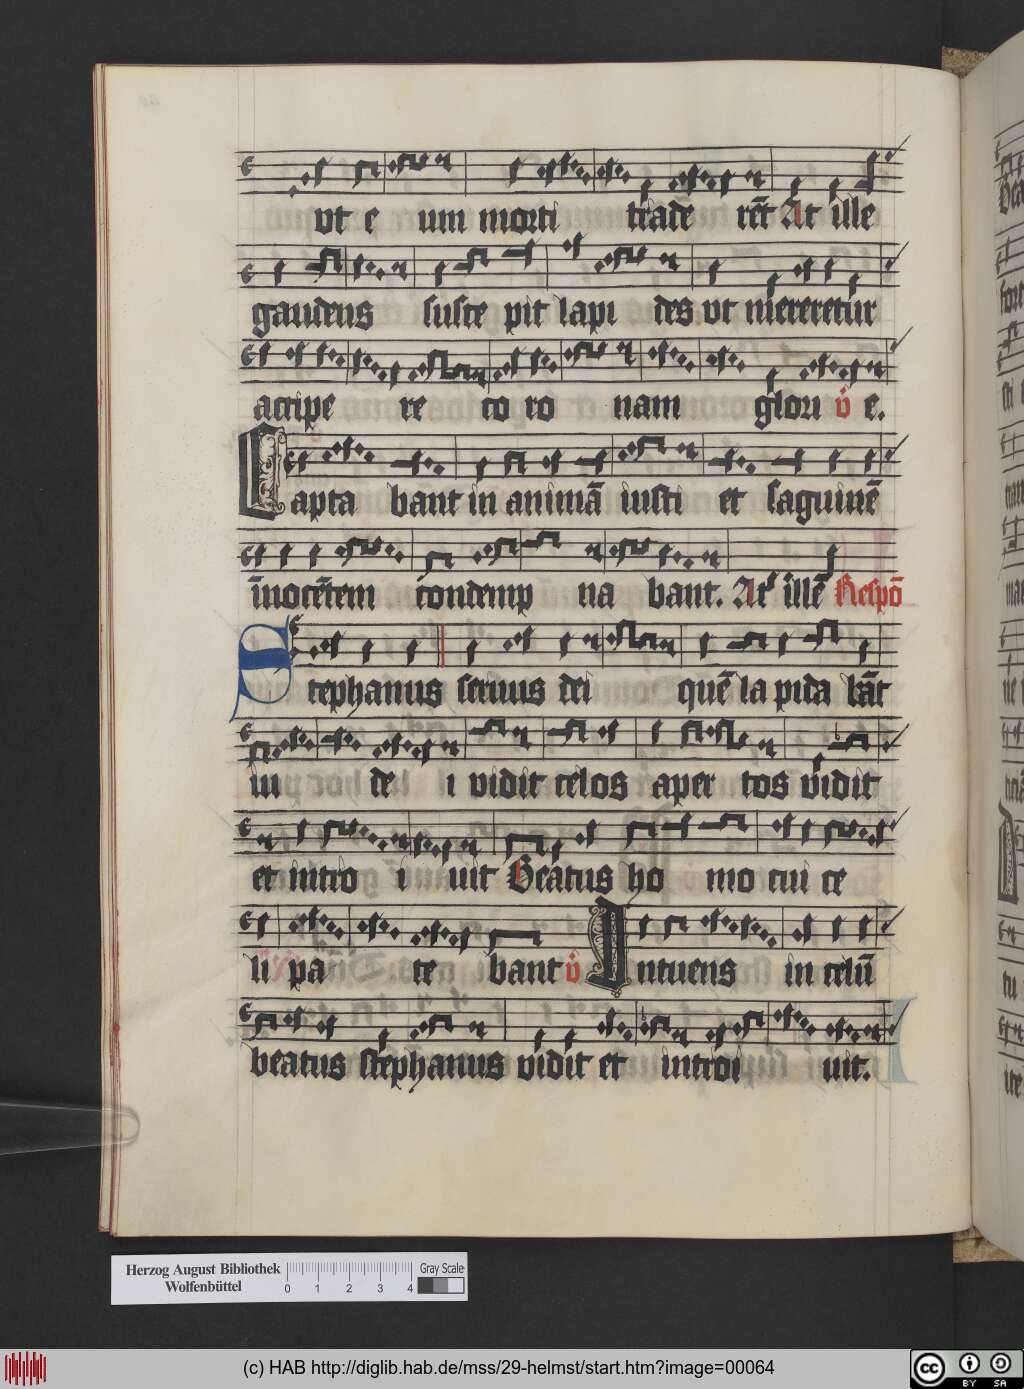 vt e um morti trade rēt At ille
gaudens suscepit lapides vt mereretur
accipe re coronam glori v̇ e.
Captabant in animā iusti et sāguinē
īnocētem condempnabant. At illē Respō
Stephanus seruus dei quē lapidabāt
iudei vidit celos apertos vidit
et introiuit Beatus homo cui ce
li patebant v̇ Intuens in celū
beatus stephanus vidit et introiuit.
Herzog August Bibliothek
Wolfenbüttel
0 1 2 3 4
Gray Scale
(c) HAB http://diglib.hab.de/mss/29-helmst/start.htm?image=00064
cc BY SA